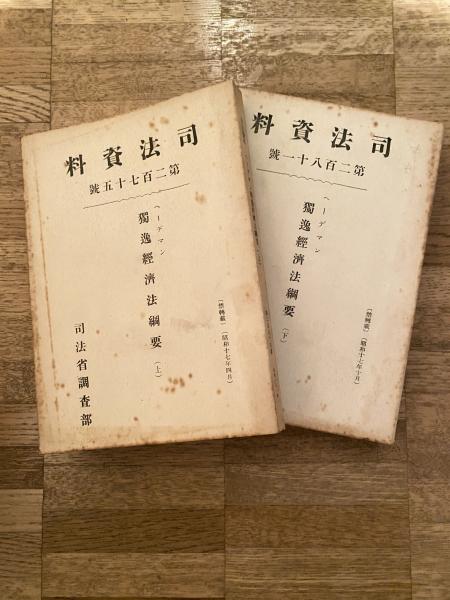 司法資料
第二百七十五號
ヘーデマン
獨逸經濟法綱要(上)
(禁轉載)(昭和十七年四月)
司法省調査部
司法資料
第二百八十一號
ヘーデマン
獨逸經濟法綱要(下)
(禁轉載)(昭和十七年十月)